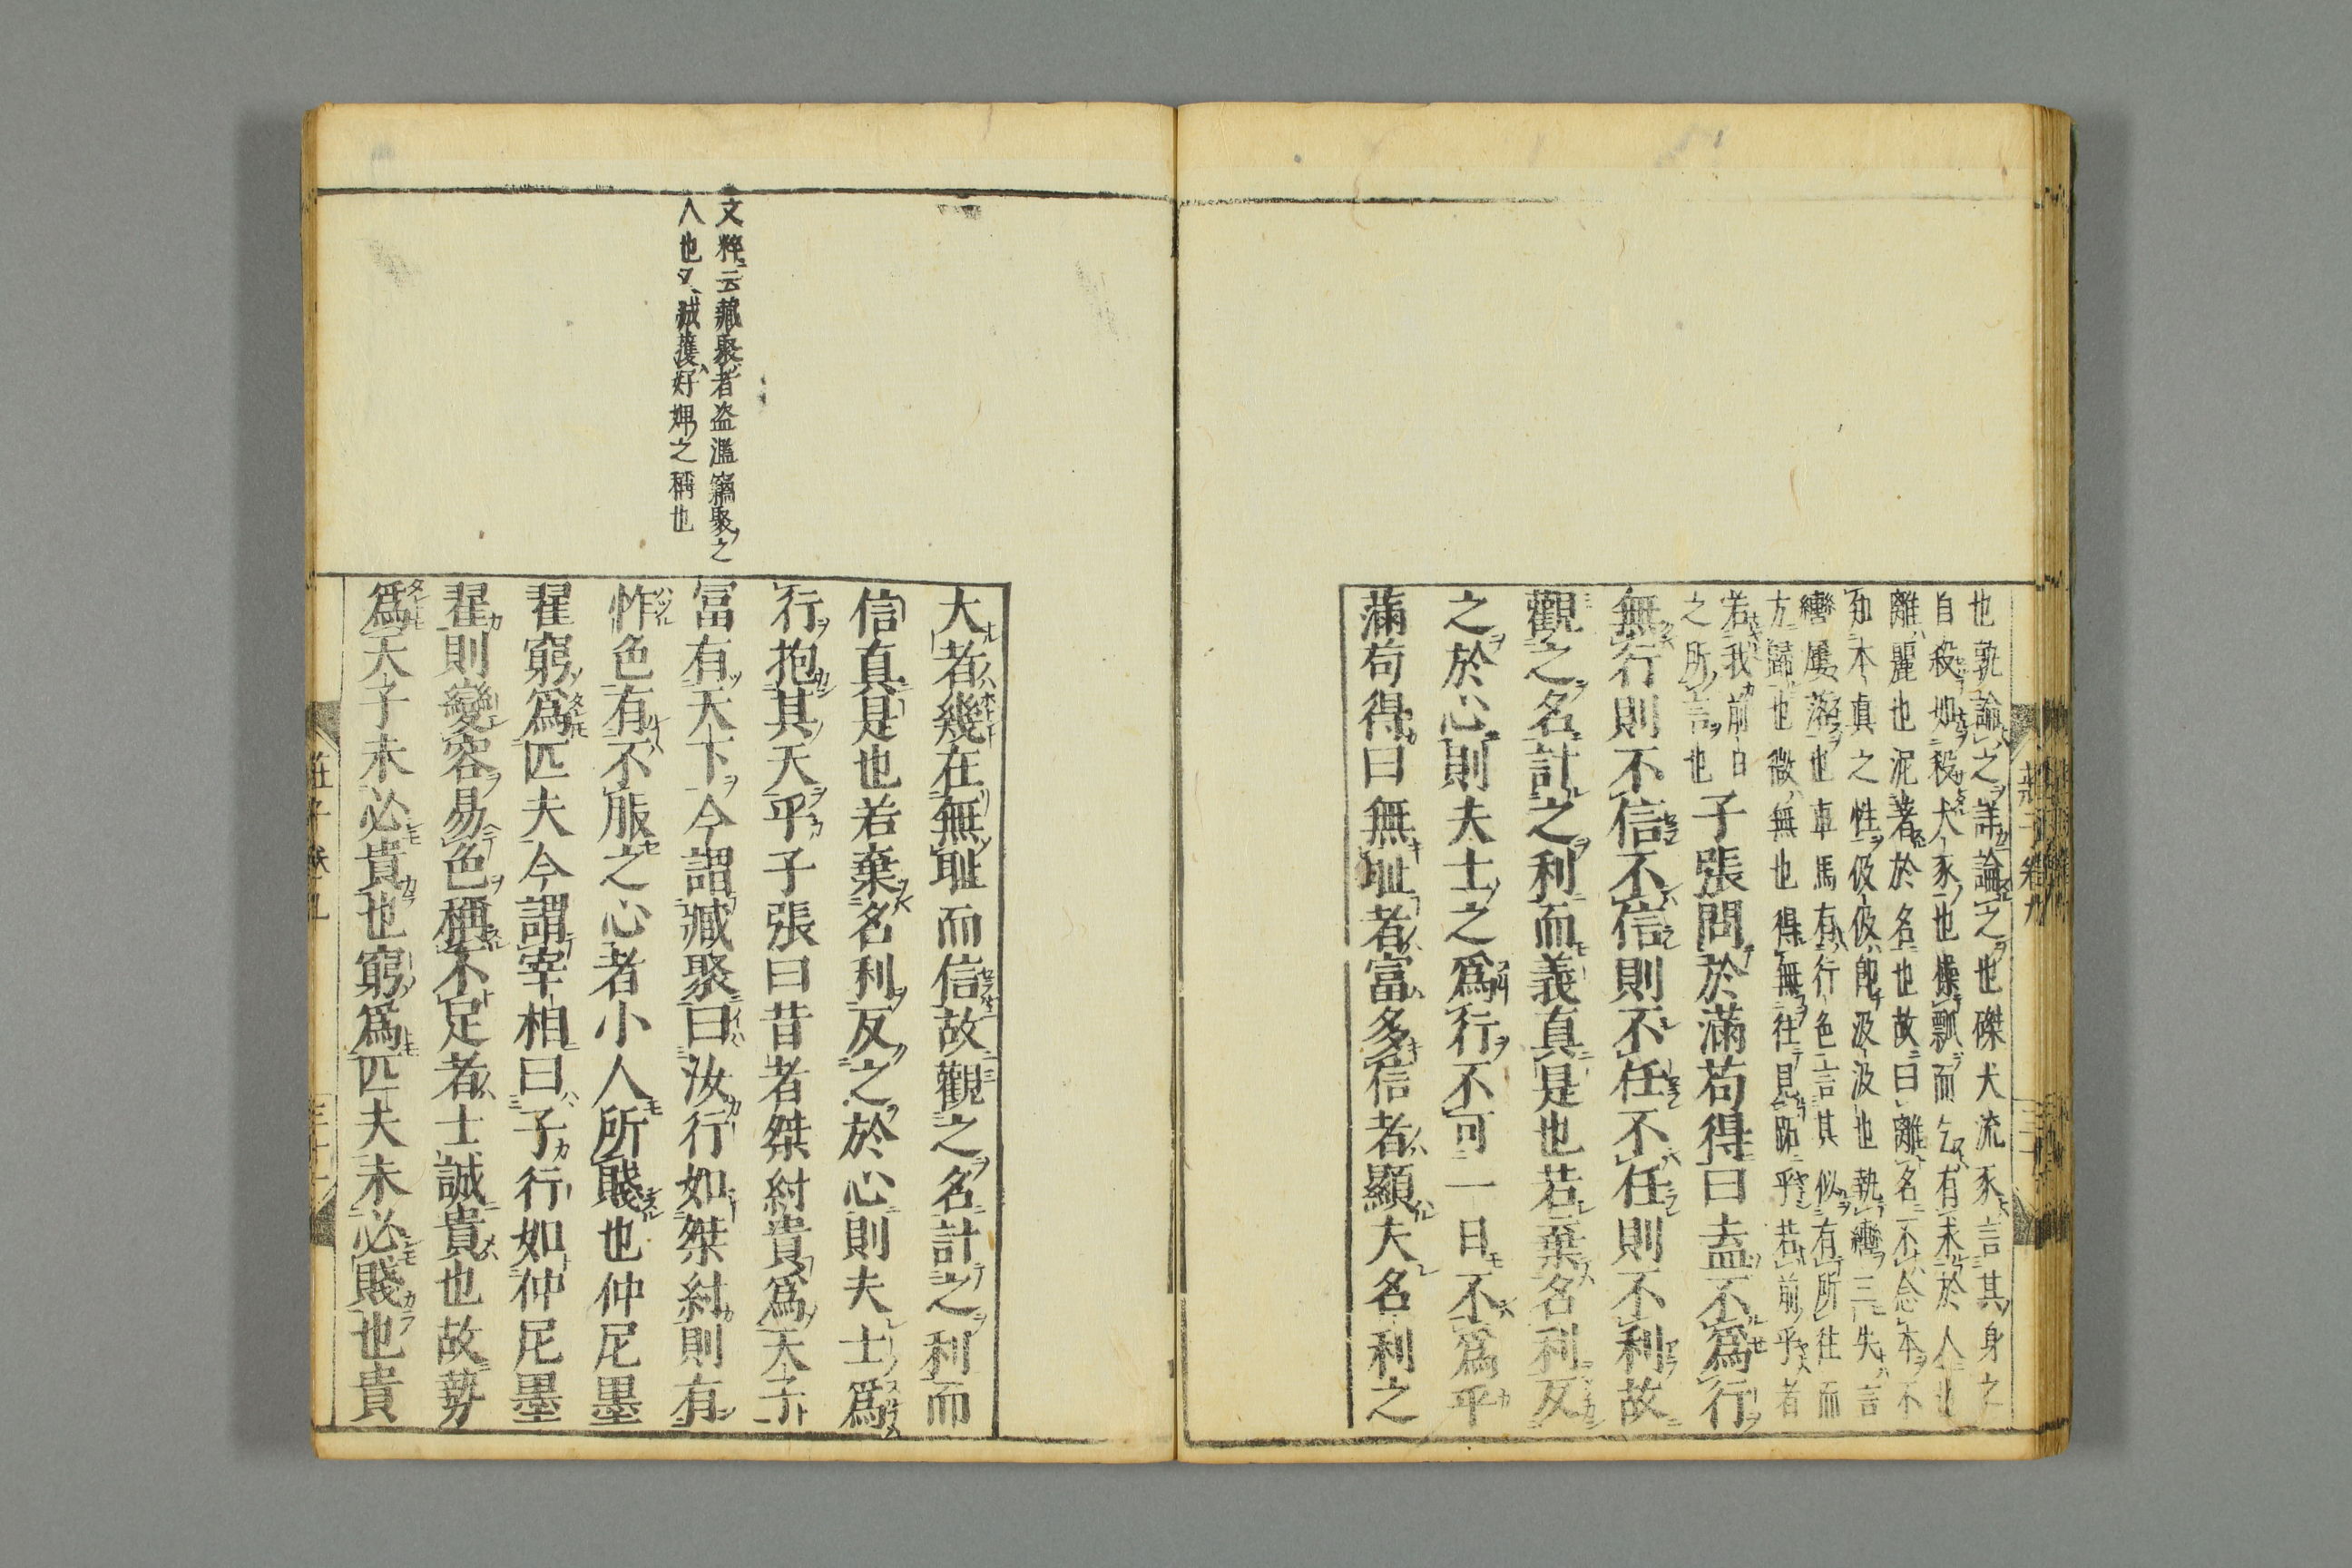 也孰論之詳論之也磔犬流豕言其身之
自殺如殺犬豕也操瓢而乞有求於人也
離麗也泥著於名也故曰離名不念本不
知本眞之性伋伋卽汲汲也執轡三失言
轡屢落也車馬有行色言其似有所往而
方歸也微無也得無往見跖乎若前乎者
若我前日
之所言也
子張問於滿苟得曰盍不爲行
無行則不信不信則不任不任則不利故
觀之名計之利而義真是也若棄名利反
之於心則夫士之爲行不可一日不爲乎
滿苟得曰無耻者富多信者顯夫名利之
莊子卷九
文粹云藏聚者盗濫竊聚之
人也又臧獲好婢之稱也
大者幾在無耻而信故觀之名計之利而
信真是也若棄名利反之於心則夫士爲
行抱其天乎子張曰昔者桀紂貴爲天子
富有天下今謂臧聚曰汝行如桀紂則有
怍色有不服之心者小人所賤也仲尼墨
翟窮爲匹夫今謂宰相曰子行如仲尼墨
翟則變容易色稱不足者士誠貴也故勢
爲天子未必貴也窮爲匹夫未必賤也貴
莊子卷九